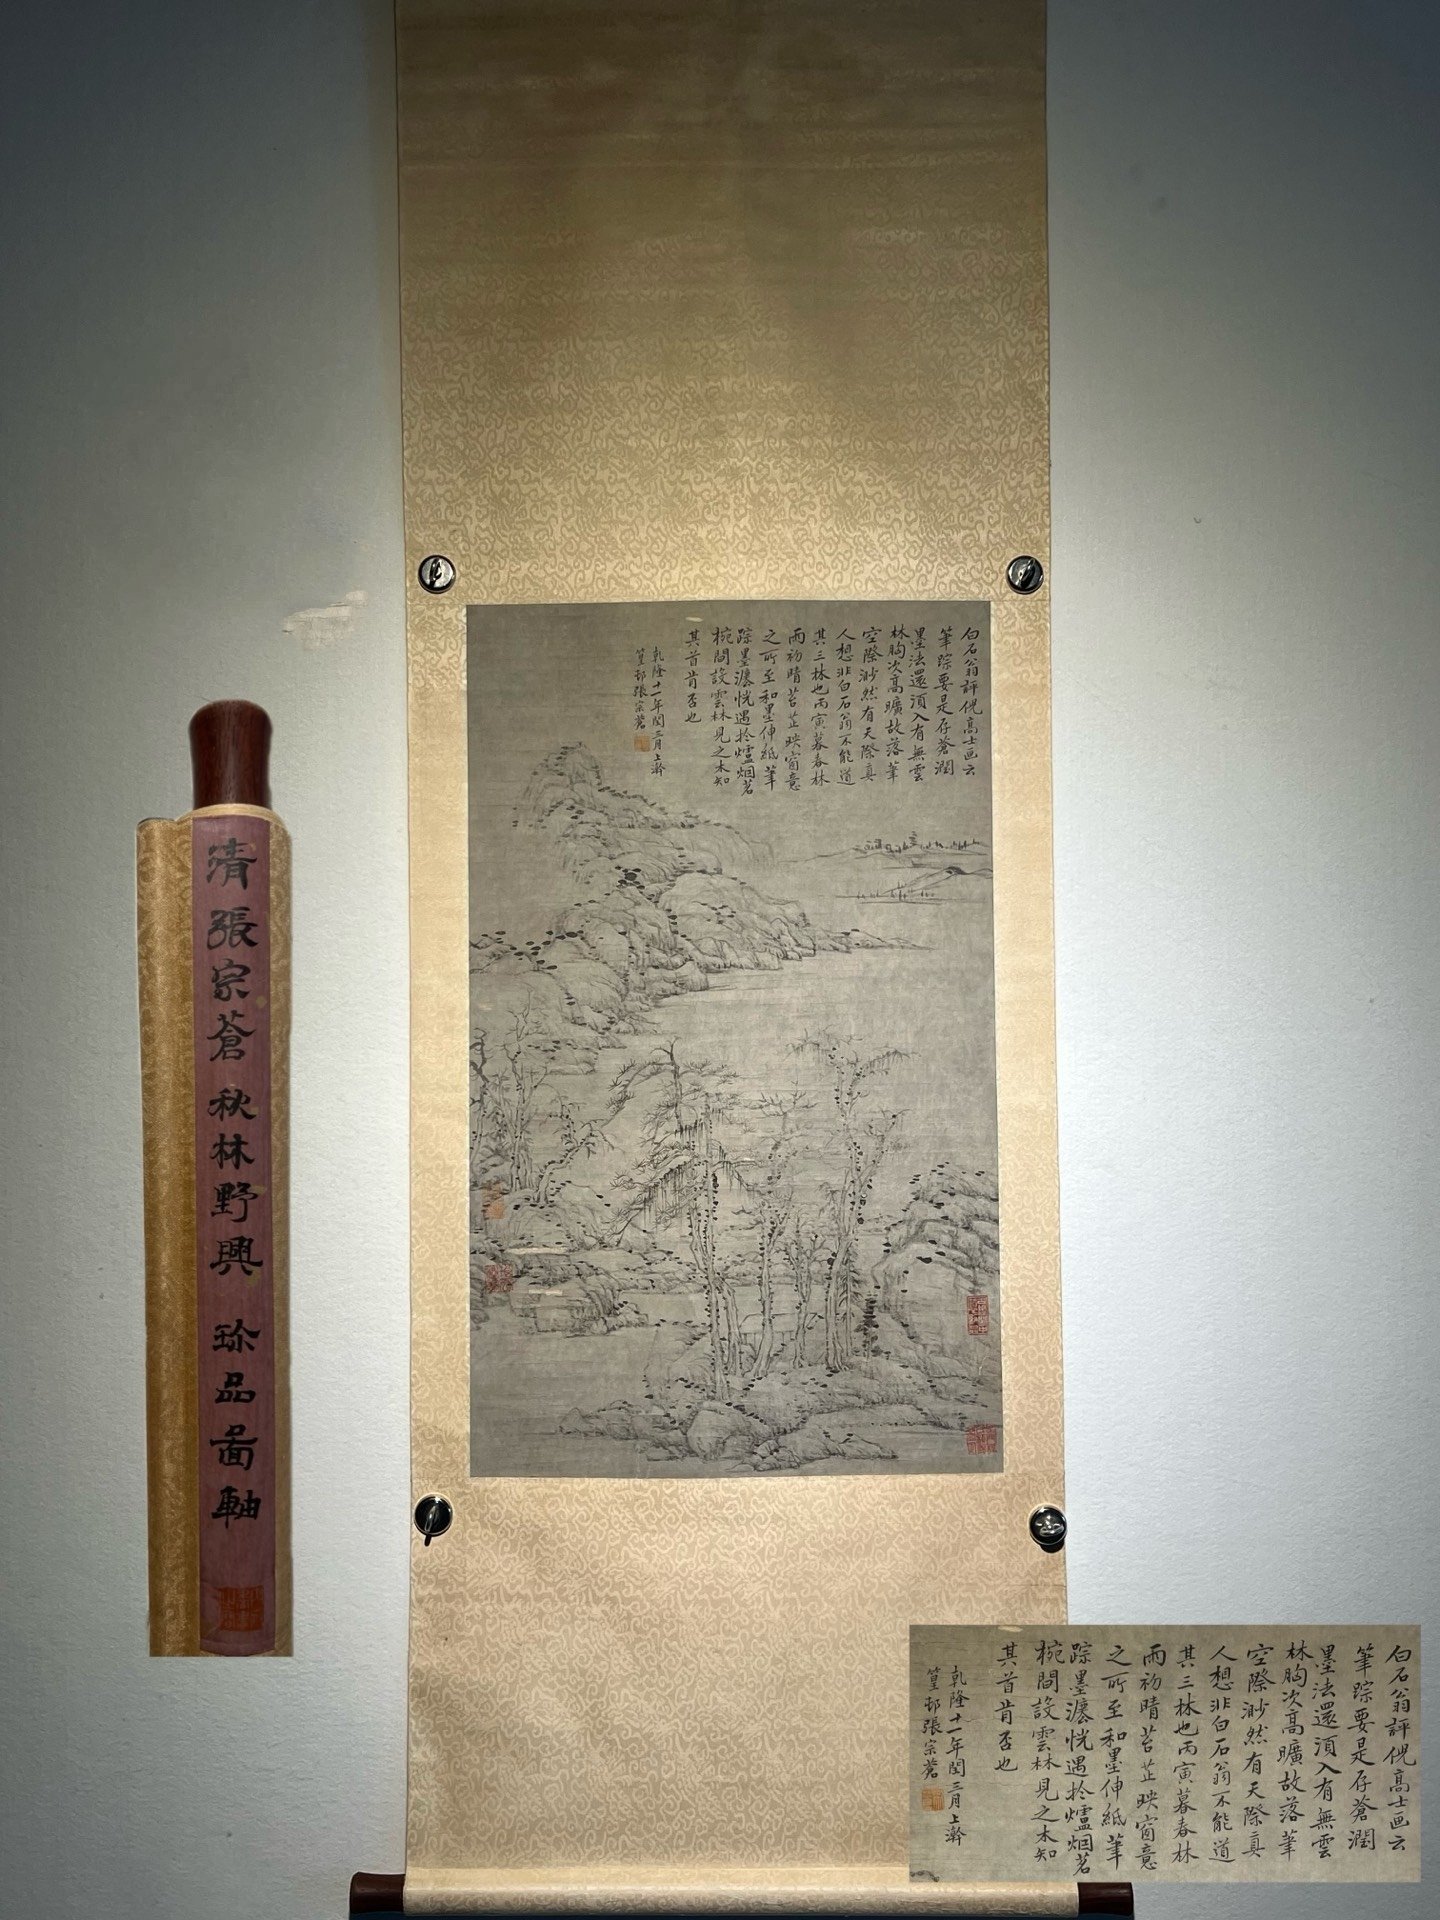 清張宗蒼秋林野興 珎品圖軸
白石翁評倪高士画云
筆踪要是存蒼潤
墨法還須入有無雲
林胸次高曠故落筆
空際渺然有天際真
人想非白石翁不能道
其三林也丙寅暮春林
雨初晴苔芷映窗意
之所至和墨伸紙筆
踪墨瀋恍遇於爐烟茗
椀間設雲林見之未知
其首肯否也
乾隆十一年閏三月上澣
篁邨張宗蒼
白石翁評倪高士画云
筆踪要是存蒼潤
墨法還須入有無雲
林胸次高曠故落筆
空際渺然有天際真
人想非白石翁不能道
其三林也丙寅暮春林
雨初晴苔芷映窗意
之所至和墨伸紙筆
踪墨瀋恍遇於爐烟茗
椀間設雲林見之未知
其首肯否也
乾隆十一年閏三月上澣
篁邨張宗蒼